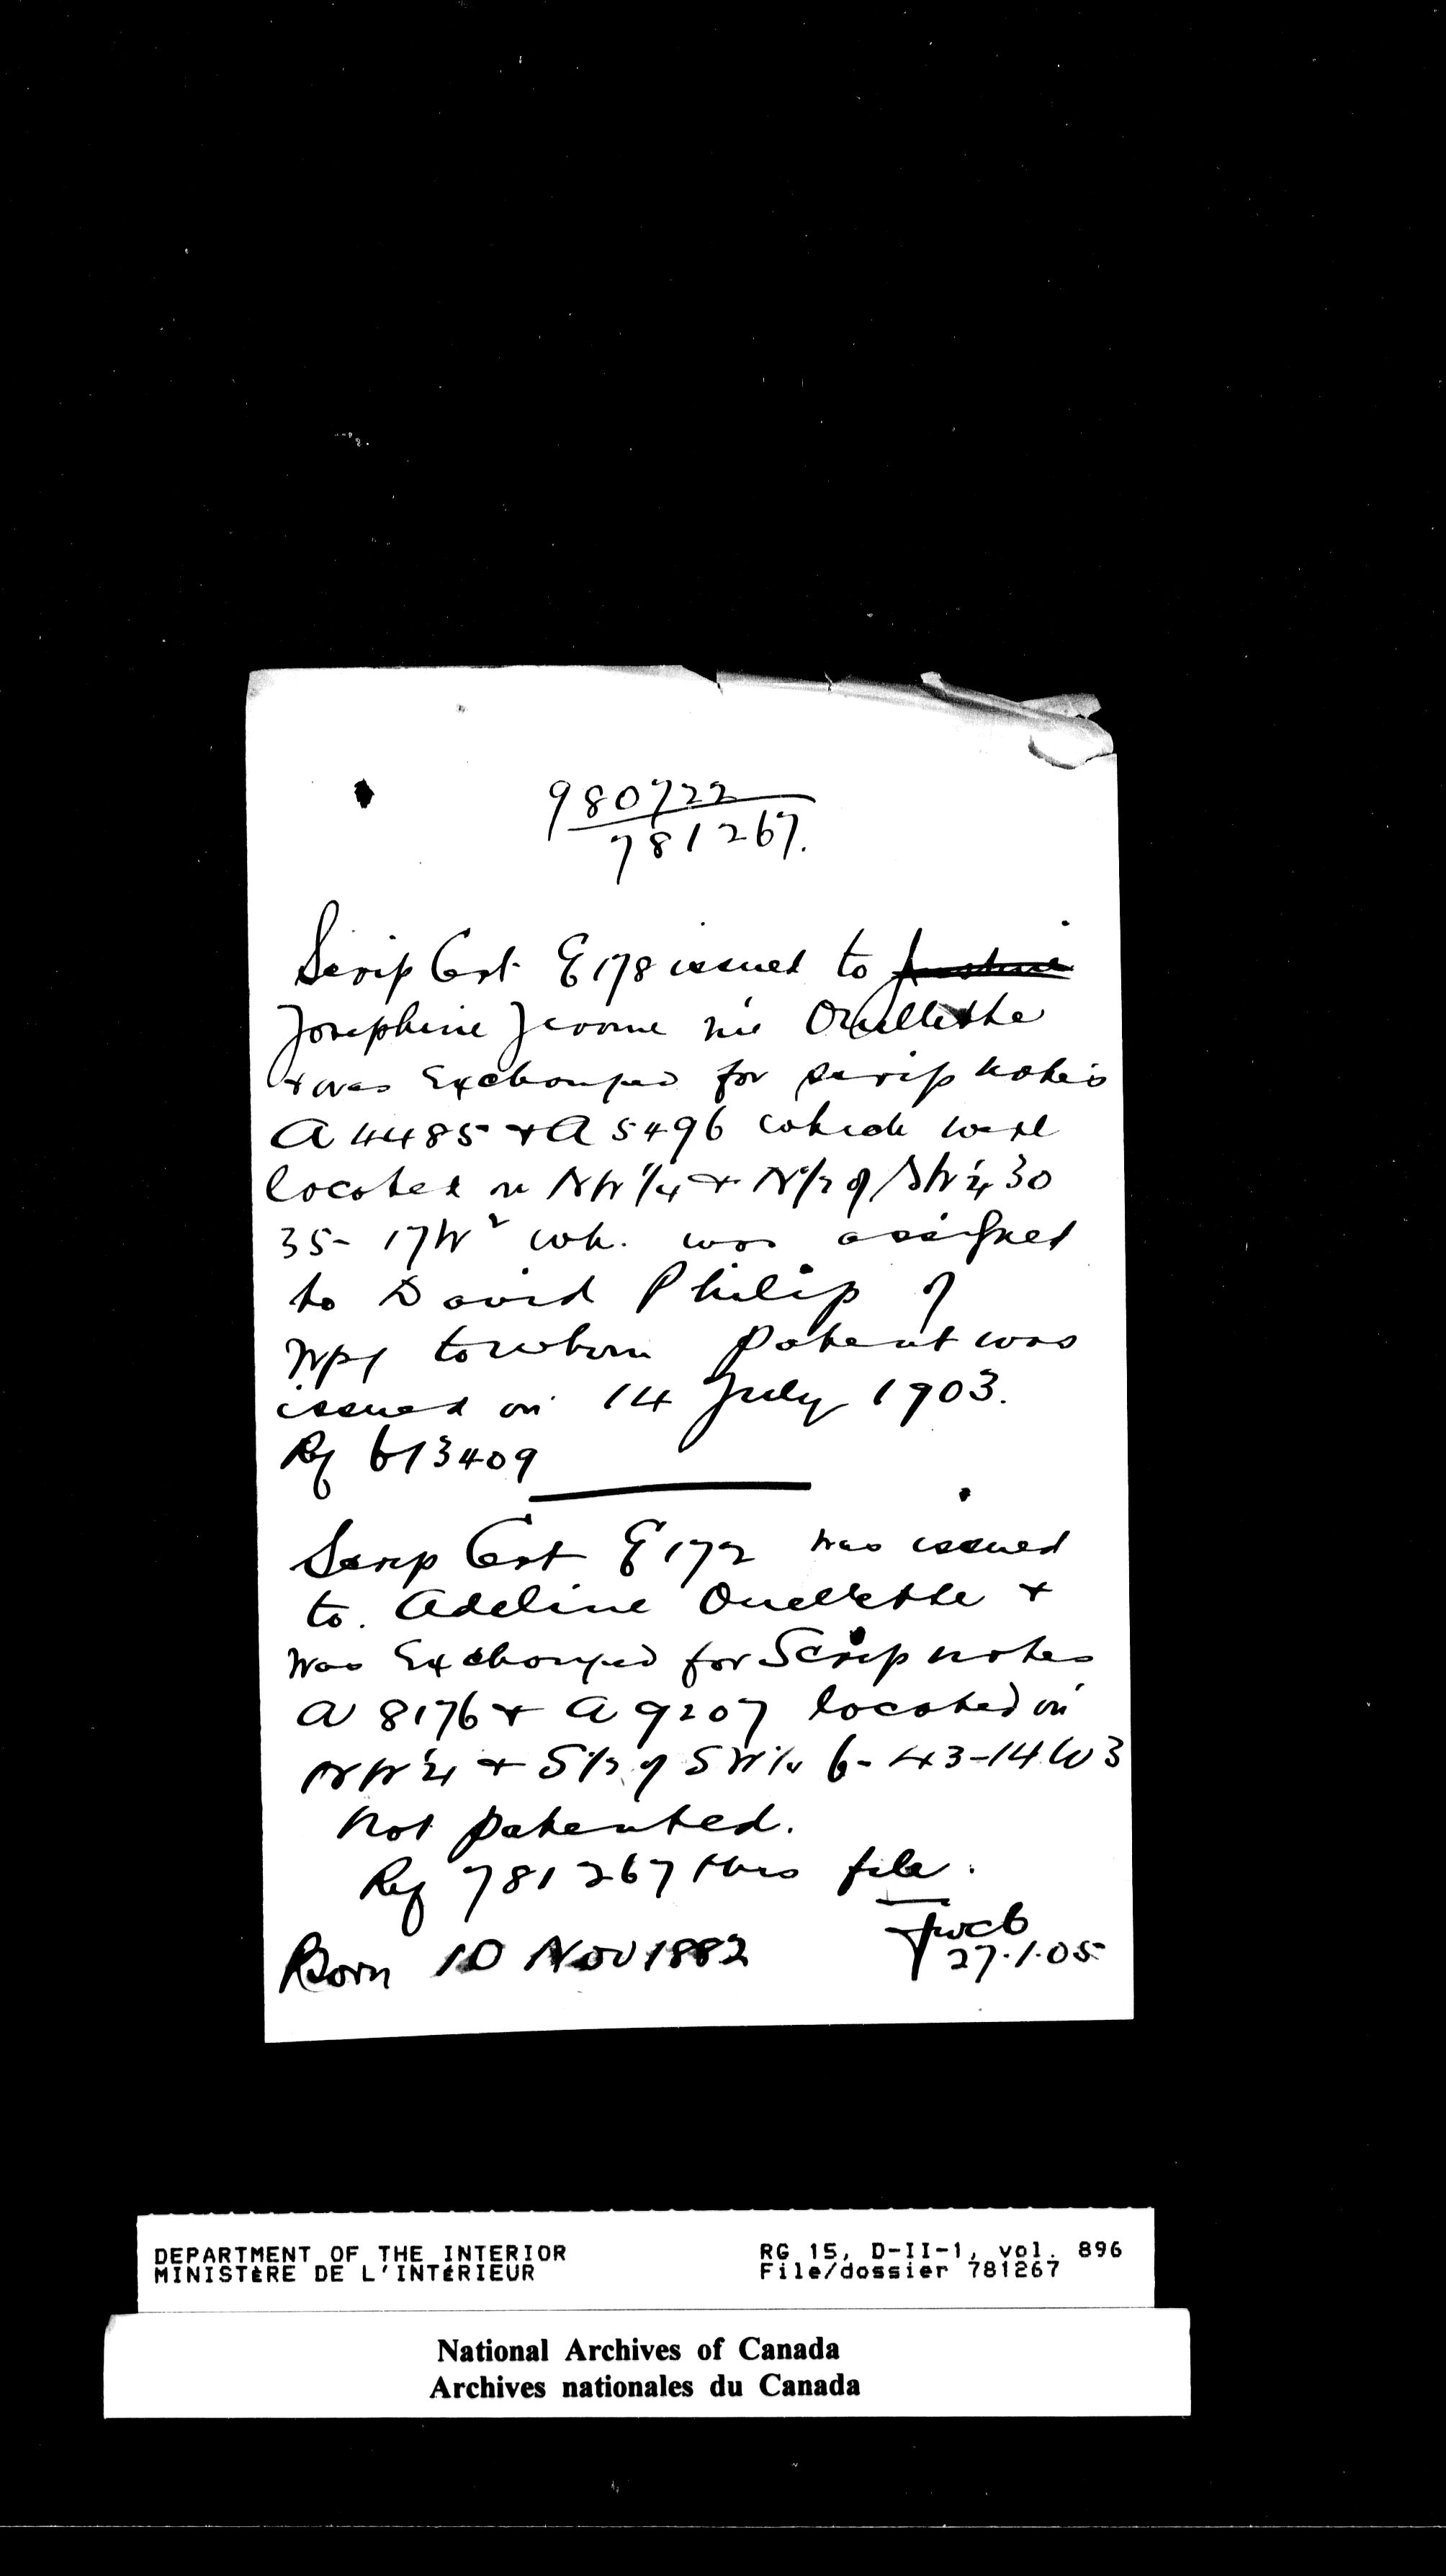 980722
781267.
Scrip Cert E 178 issued to
Josephine Jerome née Ouellette
& was Exchanged for scrip notes
A 4485 & A 5496 which were
located on NW 1/4 & N 1/2 of SW 1/4 30
35 - 17 W 2 wh. was assigned
to David Philip of
Wpg to whom patent was
issued on 14 July 1903.
Ref 613409
Scrip Cert E 172 was issued
to. Adeline Ouellette &
was Exchanged for Scrip notes
A 8176 & A 9207 located on
NW 1/4 & S 1/2 of SW 1/4 6 - 43 - 14 W 3
Not patented.
Ref 781267 this file.
27.1.05
Born 10 Nov 1882
DEPARTMENT OF THE INTERIOR RG 15, D-II-1, vol. 896
MINISTÈRE DE L'INTÉRIEUR File/dossier 781267
National Archives of Canada
Archives nationales du Canada